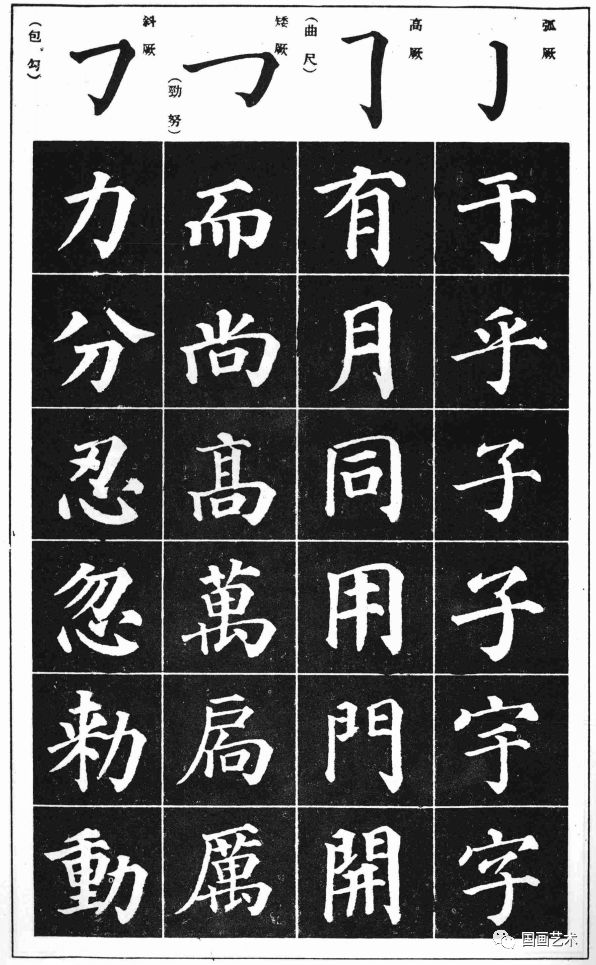 弧厥
于乎子子宇字
高厥
(曲尺)
有月同用門開
矮厥
(勁努)
而尚髙萬扃厲
斜厥
(包。勾)
力分忍忽勅動
国画艺术